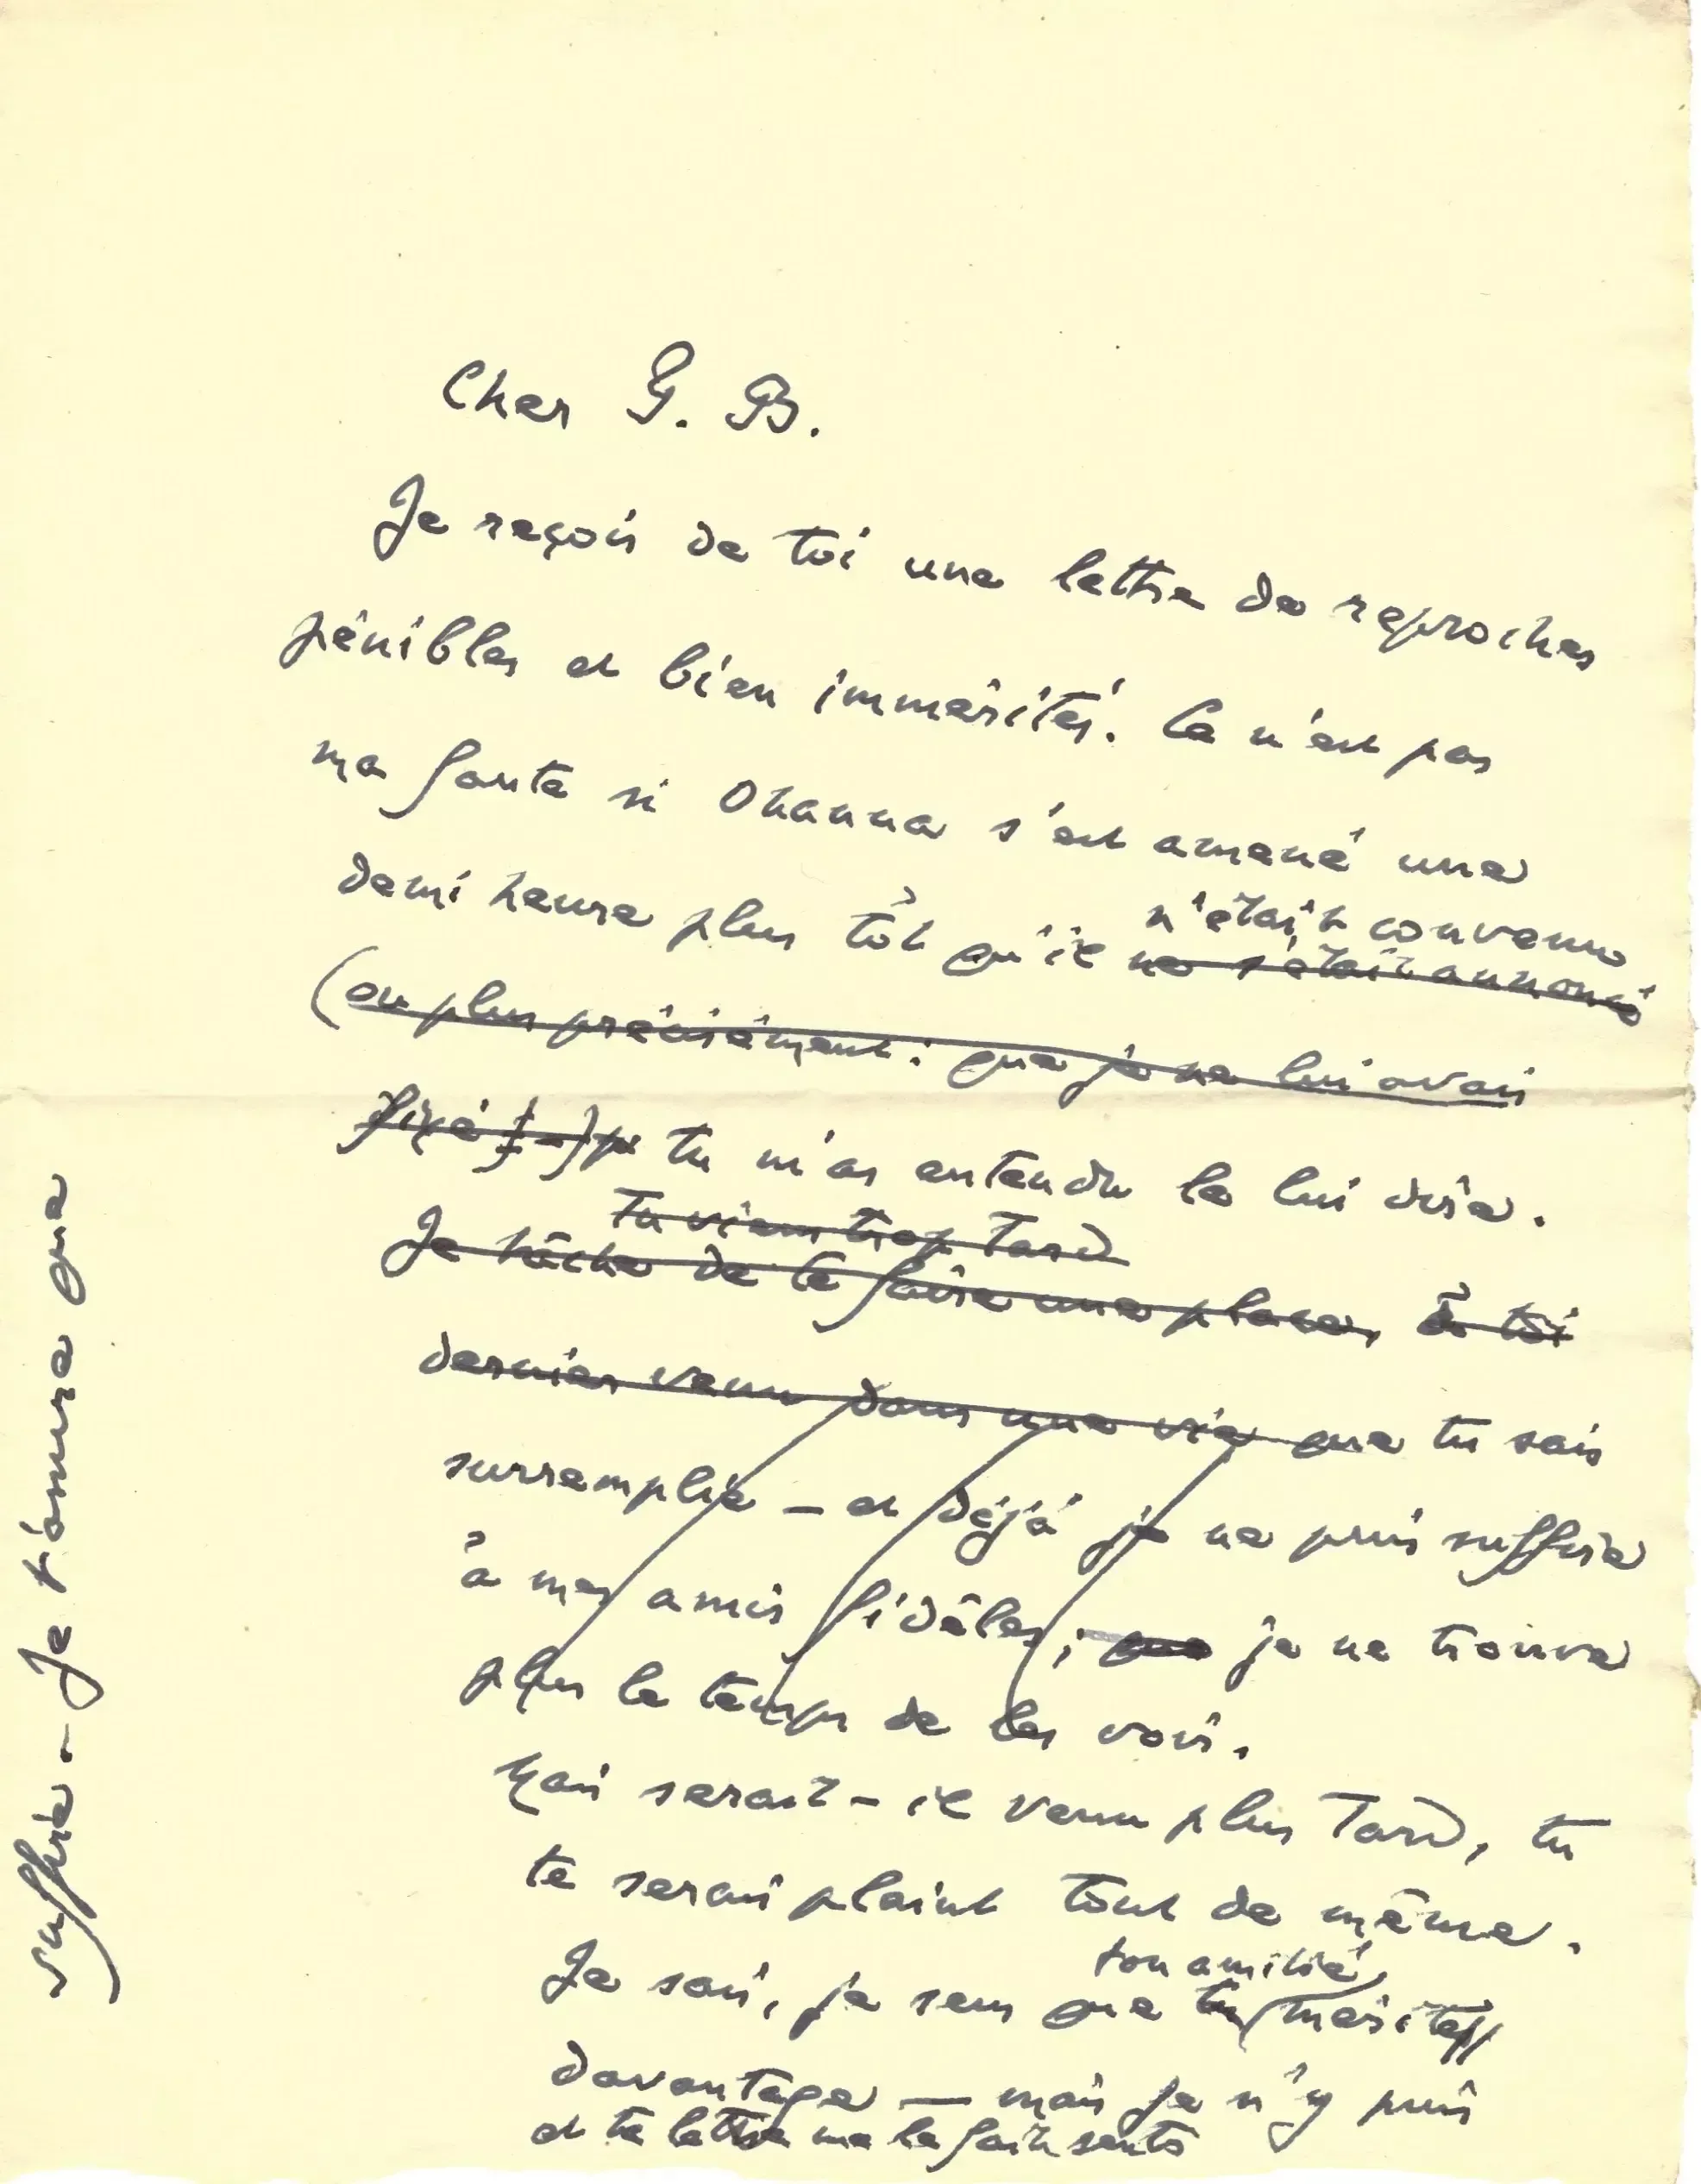 Cher G. B.
Je reçois de toi une lettre de reproches
pénibles et bien immérités. Ce n'est pas
ma faute si Ohanna s'est amené une
demi heure plus tôt qu'il
n'était convenu
ne s'était annoncé
(ou plus précisément : que je ne lui avais
fixé tu m'as entendu le lui dire.
Tu viens trop tard
Je tâche de te faire une place, à toi
dernier venu dans une vie que tu sais
surremplie – et déjà je ne puis suffire
à mes amis fidèles ; que je ne trouve
plus le temps de les voir.
Mais serait-il venu plus tard, tu
te serais plaint tout de même.
ton amitié
Je sais, je sens que tu mérites
davantage — mais je n'y puis
et ta lettre me le fait sentir
suffire – Je t'assure que